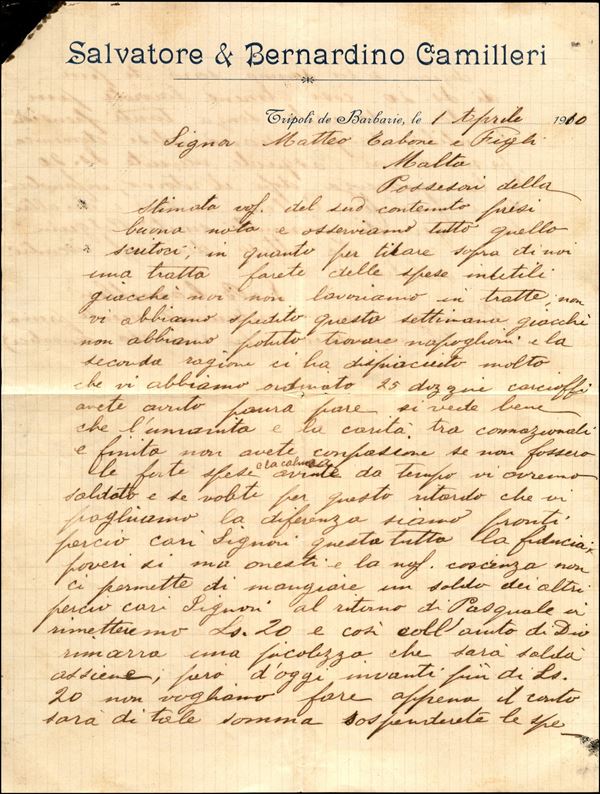 Salvatore & Bernardino Camilleri
Tripoli de Barbarie, le 1 Aprile 1910
Signor Matteo Tabone e Figli
Malta
Possesori della
Stimata vof. del suo contenuto presi
buona nota e osserviamo tutto quello
scritoci, in quanto per titare sopra di noi
una tratta farete delle spese inutili
giacchè noi non lavoriamo in tratte, non
vi abbiamo spedito questa settimana giacchè
non abbiamo potuto trovare napoglioni e la
seconda ragione ci ha dispiaciuto molto
che vi abbiamo ordinato 25 dozzine carcioffi
avete avuto paura pare si vede bene
che l'umanita e la carità tra comazionali
e finita non avete conpasione se non fossero
le forte spese e la calma avute da tempo vi avremo
saldato e se volete per questo ritardo che vi
paghiamo la diferenza siamo pronti
percio cari Signori questa tutta la fiducia,
poveri si ma onesti e la nof. coscenza non
ci permette di mangiare un soldo dei altri
percio cari Signori al ritorno di Pasquale vi
rimetteremo Ls. 20 e così coll'aiuto di Dio
rimarra una picolezza che sarà salda
assieme, pero d'oggi invanti più di Ls.
20 non vogliamo fare appena il conto
sarà di tale somma sospenderete le spe